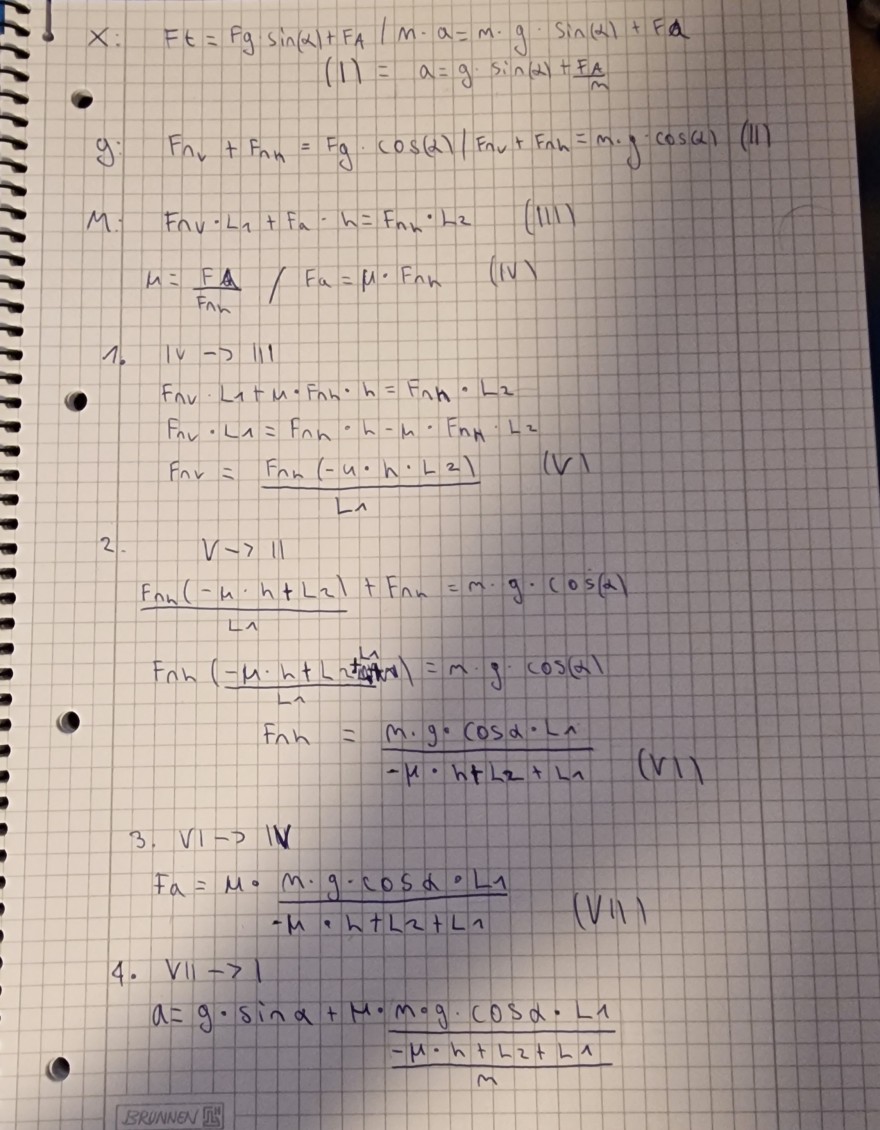 X: Ft = Fg sin(α) + FA / m · a = m · g · sin(α) + FA
(I) = a = g · sin(α) + FA/m
y: Fnv + Fnh = Fg · cos(α) / Fnv + Fnh = m · g · cos(α) (II)
M: Fnv · L1 + Fa · h = Fnh · L2 (III)
μ = FA/Fnh / Fa = μ · Fnh (IV)
1. IV -> III
Fnv · L1 + μ · Fnh · h = Fnh · L2
Fnv · L1 = Fnh · h - μ · Fnh · L2
Fnv = Fnh (-μ · h · L2) / L1 (V)
2. V -> II
Fnh (-μ · h + L2) / L1 + Fnh = m · g · cos(α)
Fnh (-μ · h + L2 + L1 / L1) = m · g · cos(α)
Fnh = m · g · cos α · L1 / -μ · h + L2 + L1 (VI)
3. VI -> IV
Fa = μ · m · g · cos α · L1 / -μ · h + L2 + L1 (VII)
4. VII -> I
a = g · sin α + μ · m · g · cos α · L1 / -μ · h + L2 + L1 / m
BRUNNEN